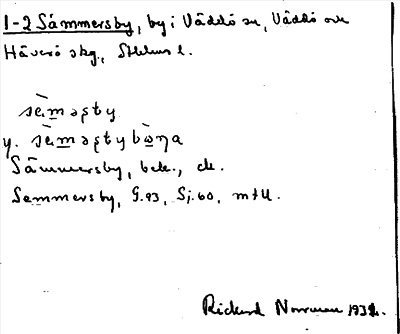 1-2 Sämmersby, by i Väddö sn, Väddö och
Häverö skg., Sthlms l.
sæ̀məʂty
y. sæ̀məʂtybòŋa
Sämmersby, bek., ek.
Semmersby, G.93, Sj.60, mtU.
Rickard Norrman 1932.